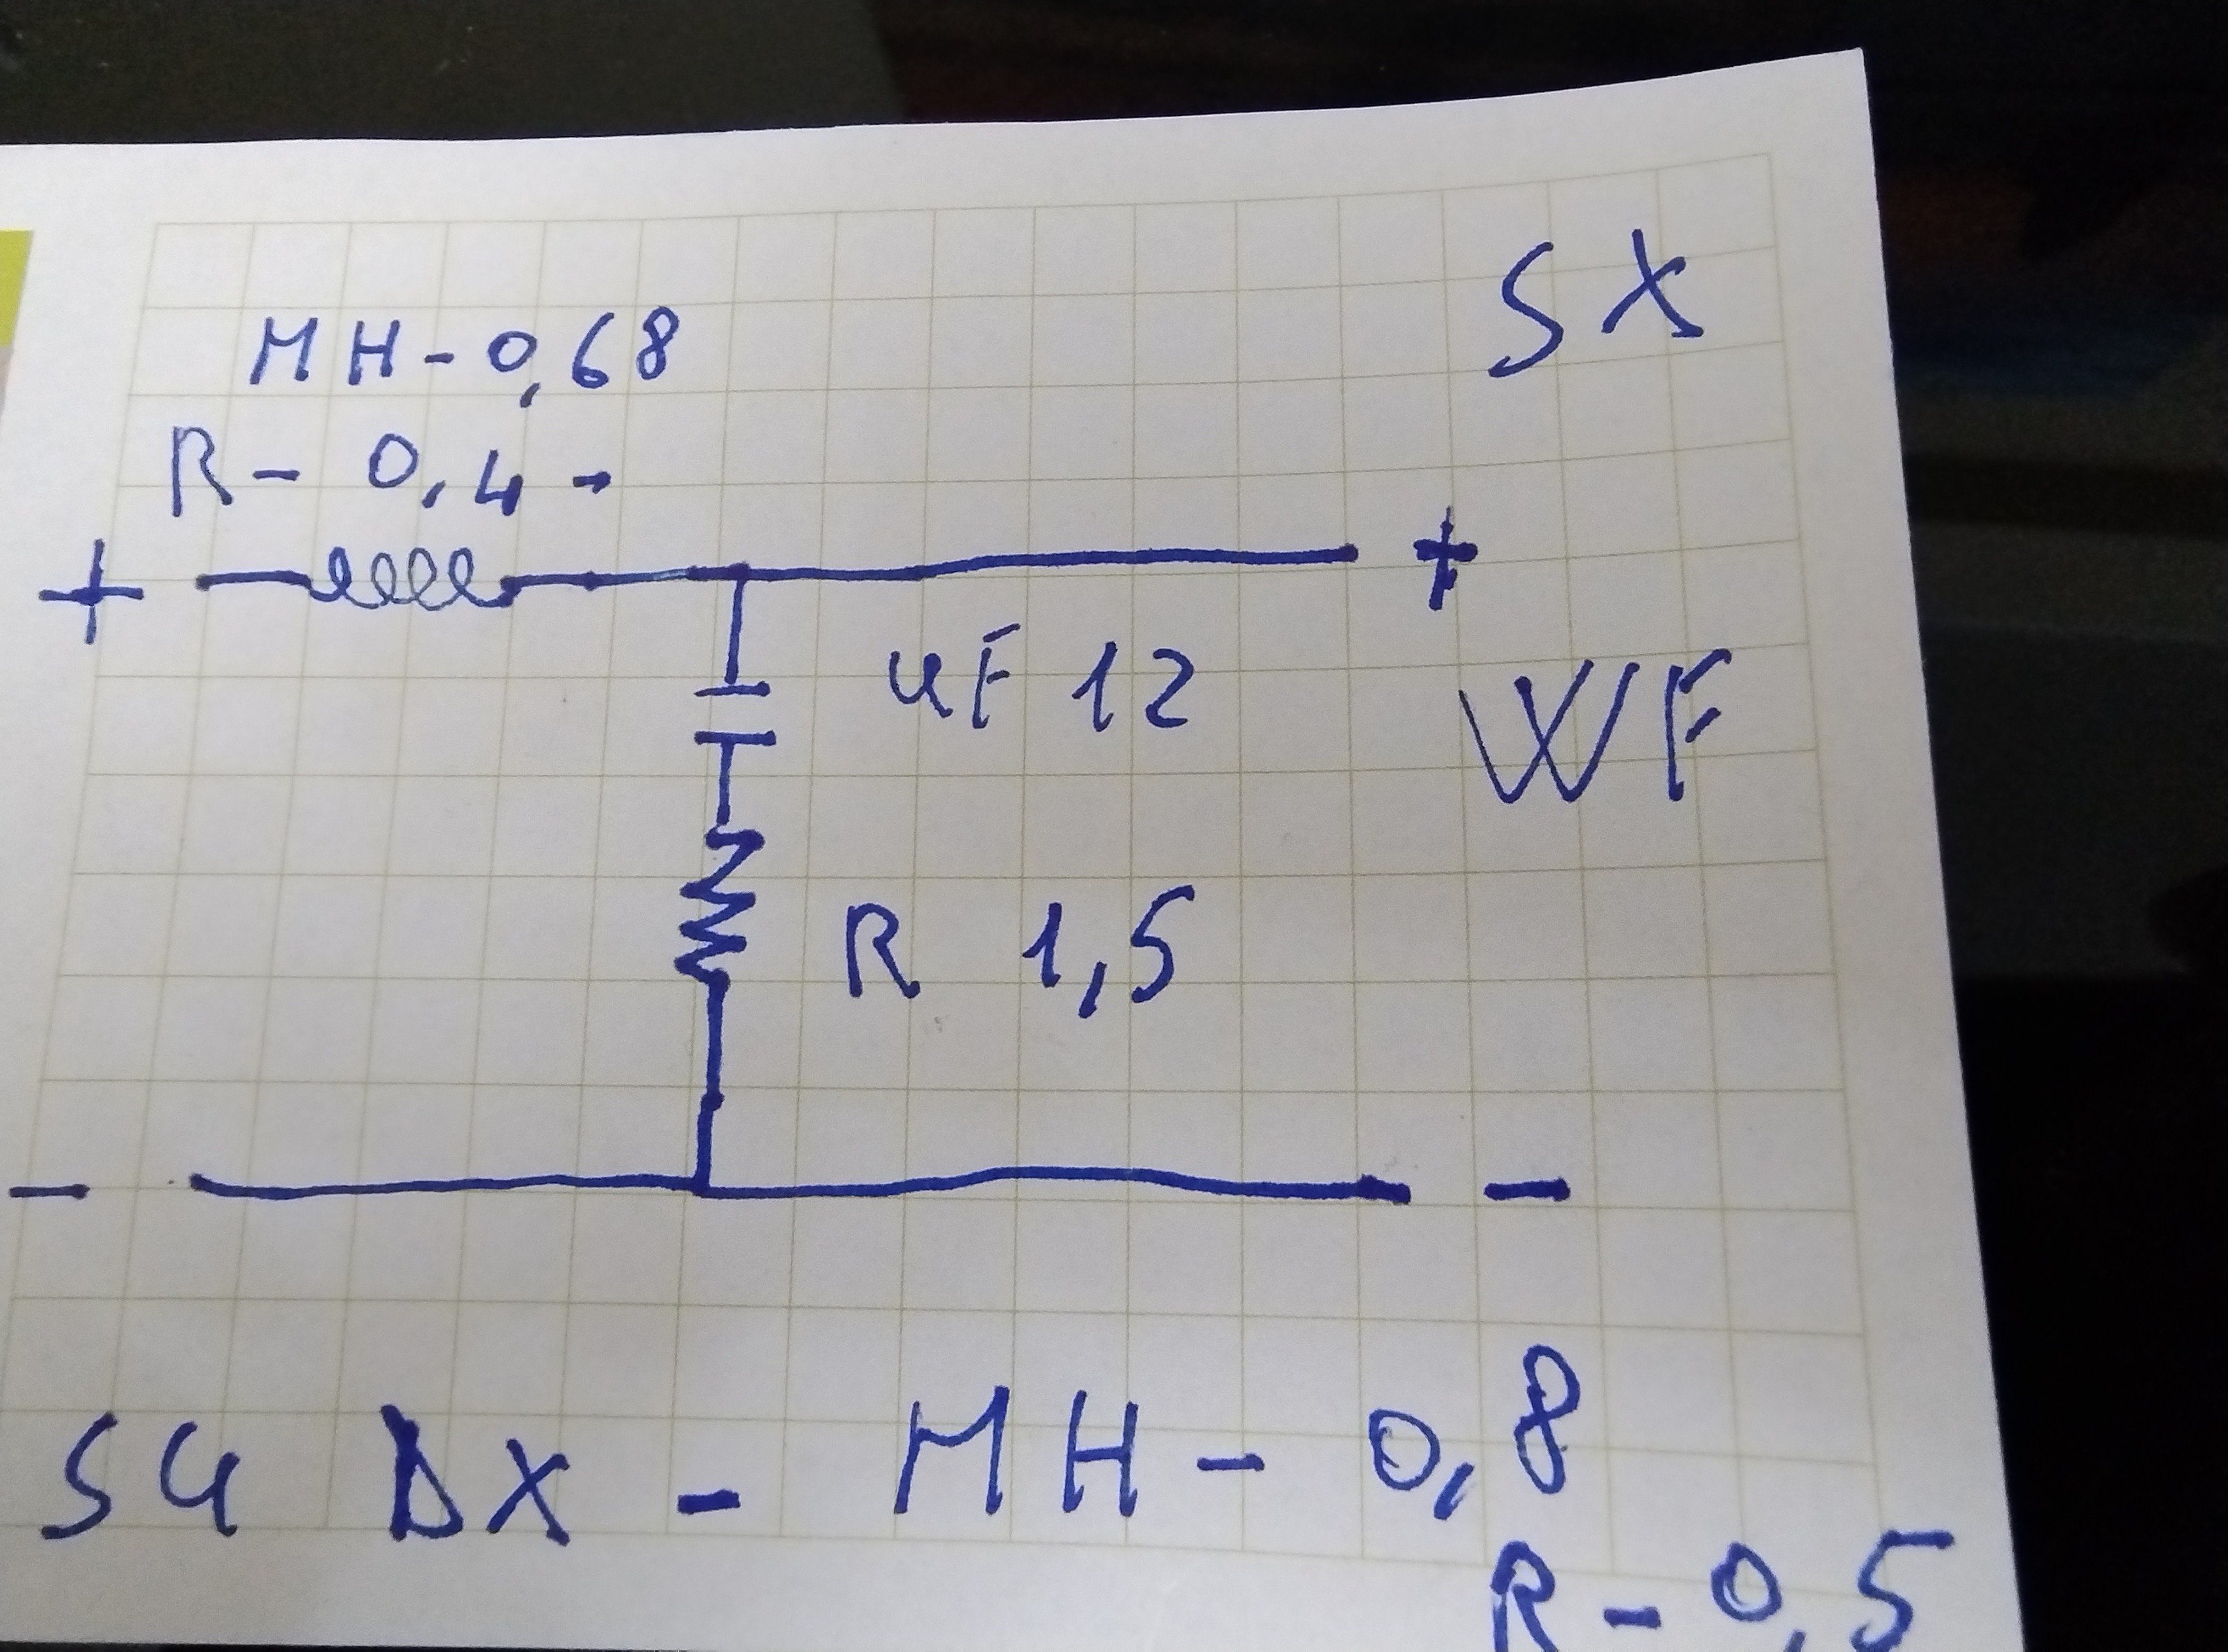 SX
MH-0,68
R- 0,4 -
+ +
uF 12
WF
R 1,5
- -
SU DX - MH- 0,8
R-0,5